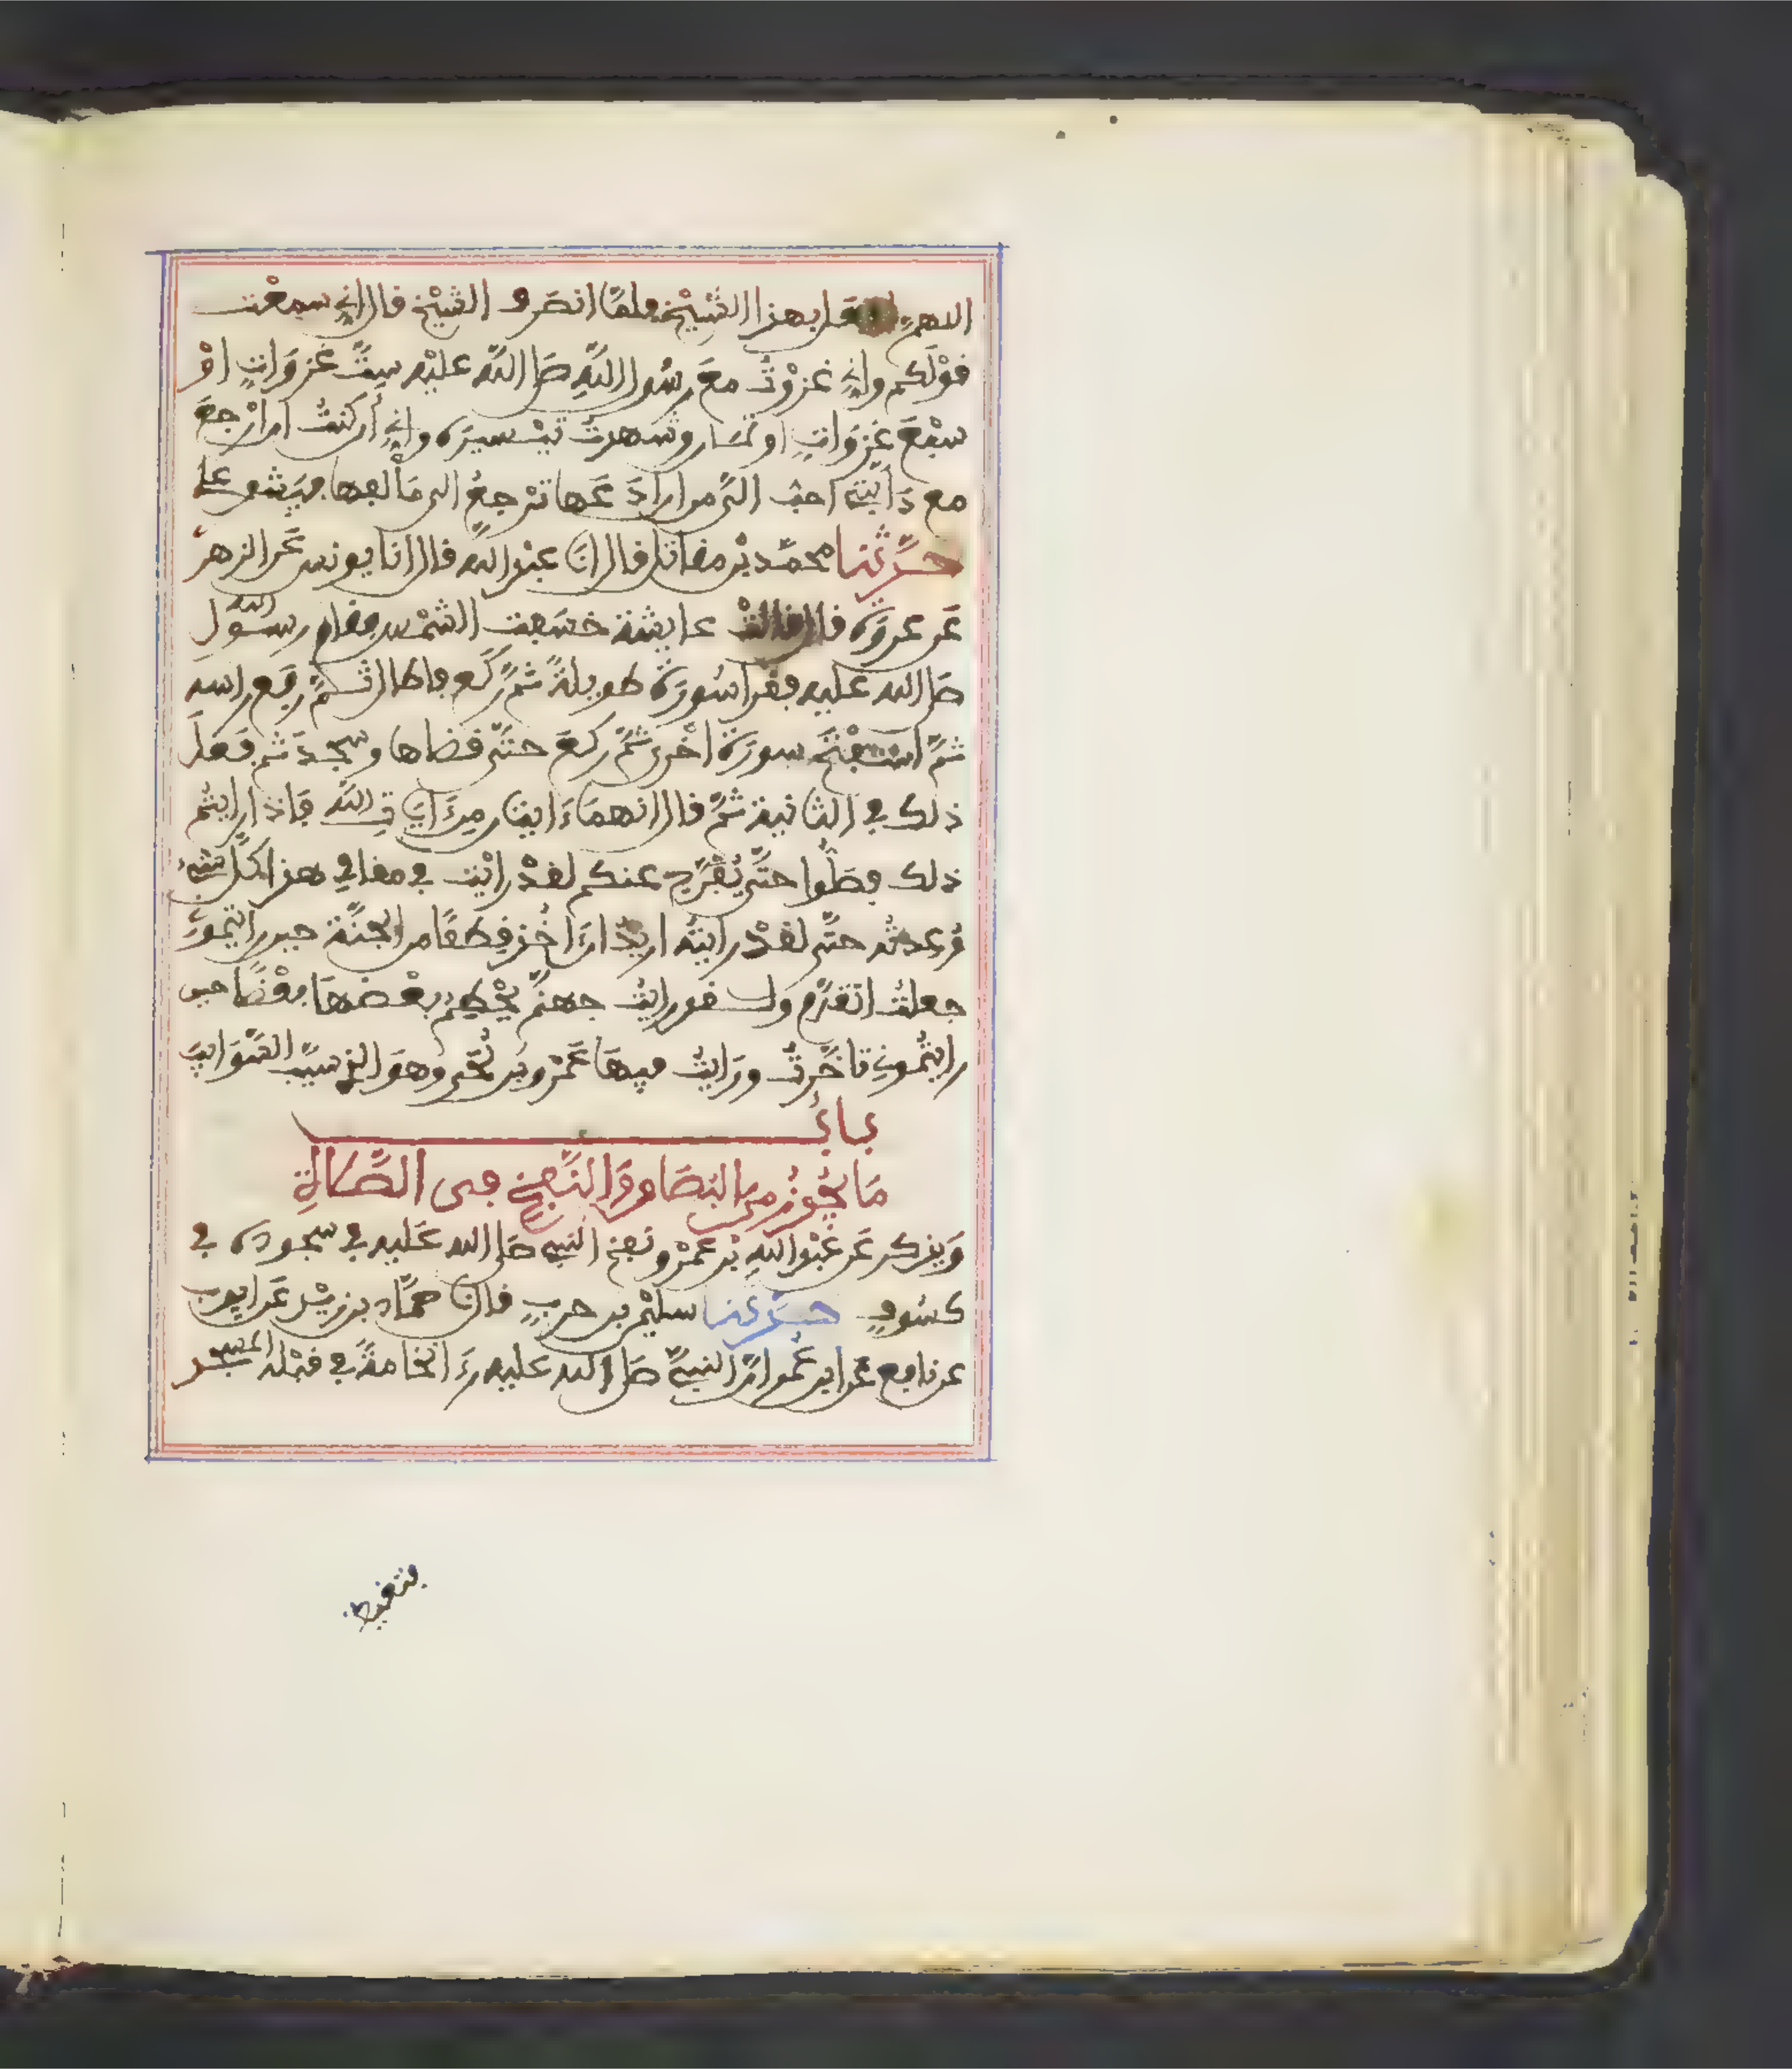 اللهم افعل بهذا الشيخ فلما انصرف الشيخ قال اني سمعت
قولكم واني غزوت مع رسول الله صلى الله عليه ست غزوات او
سبع غزوات او ثمان وشهدت تيسيره واني أن كنت ان ارجع
مع دابتي احب الي من ان ادعها ترجع الى مألفها فيشق علي
حدثنا محمد بن مقاتل قال انا عبد الله قال انا يونس عن الزهري
عن عروة قال قالت عايشة خسفت الشمس فقام رسول الله
صلى الله عليه فقرا سورة طويلة ثم ركع فاطال ثم رفع راسه
ثم استفتح سورة اخرى ثم ركع حتى قضاها وسجد ثم فعل
ذلك في الثانية ثم قال انهما ءايتان من ءايات الله فاذا رايتم
ذلك فصلوا حتى يفرج عنكم لقد رايت في مقامي هذا كل شيء
وعدته حتى لقد رايته اريد ان ءاخذ قطفا من الجنة حين رايتموني
جعلت اتقدم ولقد رايت جهنم يحطم بعضها بعضا حين
رايتموني تاخرت ورايت فيها عمرو بن لحي وهو الذي سيب السوايب
باب
ما يجوز من البصاق والنفخ في الصلاة
ويذكر عن عبد الله بن عمرو نفخ النبي صلى الله عليه في سجوده في
كسوف حدثنا سليمن بن حرب قال نا حماد بن زيد عن ايوب
عن نافع عن ابن عمر ان النبي صلى الله عليه رءا نخامة في قبلة المسجد
فتغيظ